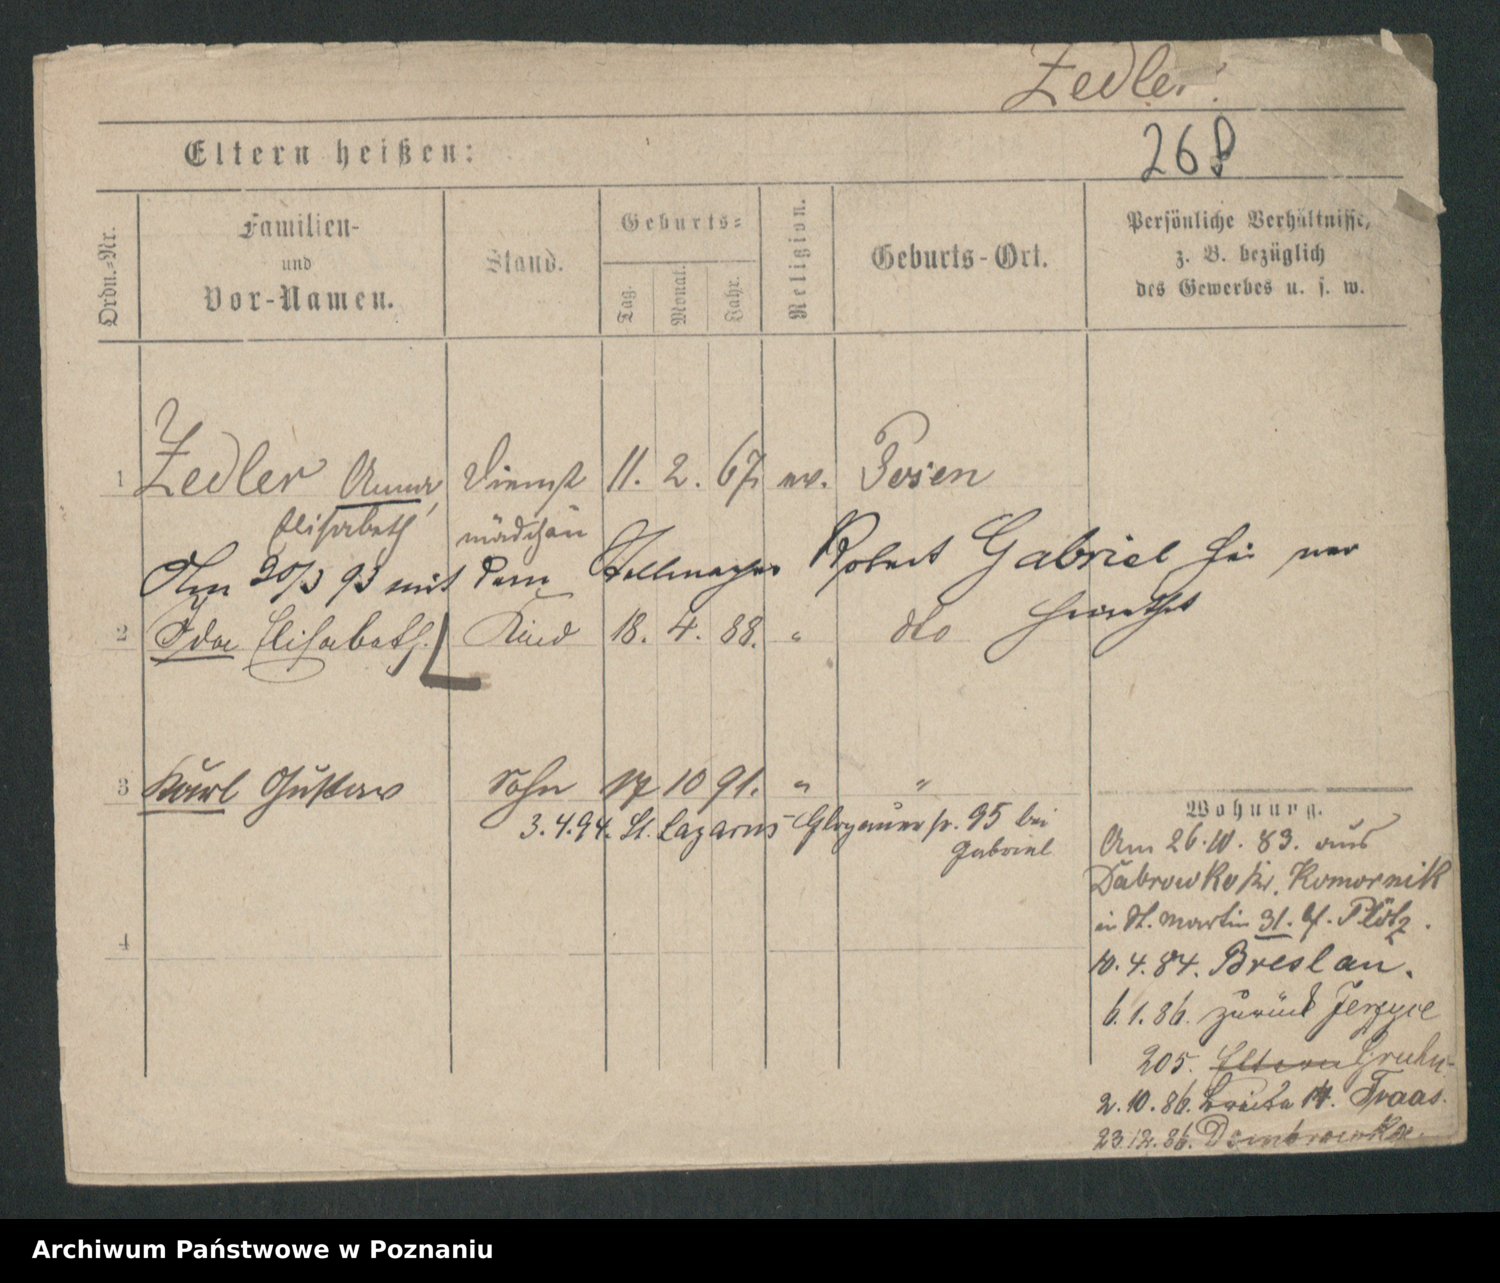 Zedler.
268
Eltern heißen:
Ordn.-Nr.
Familien-
und
Vor-Namen.
Stand.
Geburts-
Tag.
Monat.
Jahr.
Religion.
Geburts-Ort.
Persönliche Verhältnisse,
z. B. bezüglich
des Gewerbes u. s. w.
1 Zedler Anna Dienst 11. 2. 67 ev. Posen
Elisabeth mädchen
Am 20/3 93 mit dem Stellmacher Robert Gabriel hier ver
heirathet
2 Ida Elisabeth. Kind 18. 4. 88. " dto
3 Karl Gustav Sohn 17 10 91. " "
3.4.94. St. Lazarus Glogauer str. 95 bei
Gabriel
4
Wohnung.
Am 26.10.83. aus
Dabrowka Komornik
in St. Martin 31. Plötz.
10.4.84. Breslau.
6.1.86. zurück Jerzyce
205. Eltern Gruhn
2.10.86. 14. Traas.
23.12.86. Dombrowka.
Archiwum Państwowe w Poznaniu